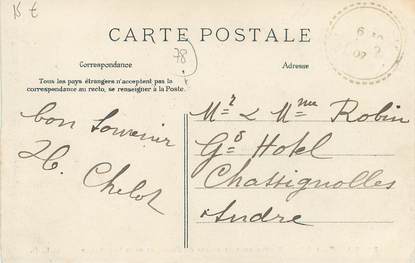 15 €
CARTE POSTALE
78
Correspondance
Adresse
Tous les pays étrangers n'acceptent pas la
correspondance au recto, se renseigner à la Poste.
bon Souvenir
H. Chelot
Mr & Mme Robin
Gd Hotel
Chassignolles
Andre